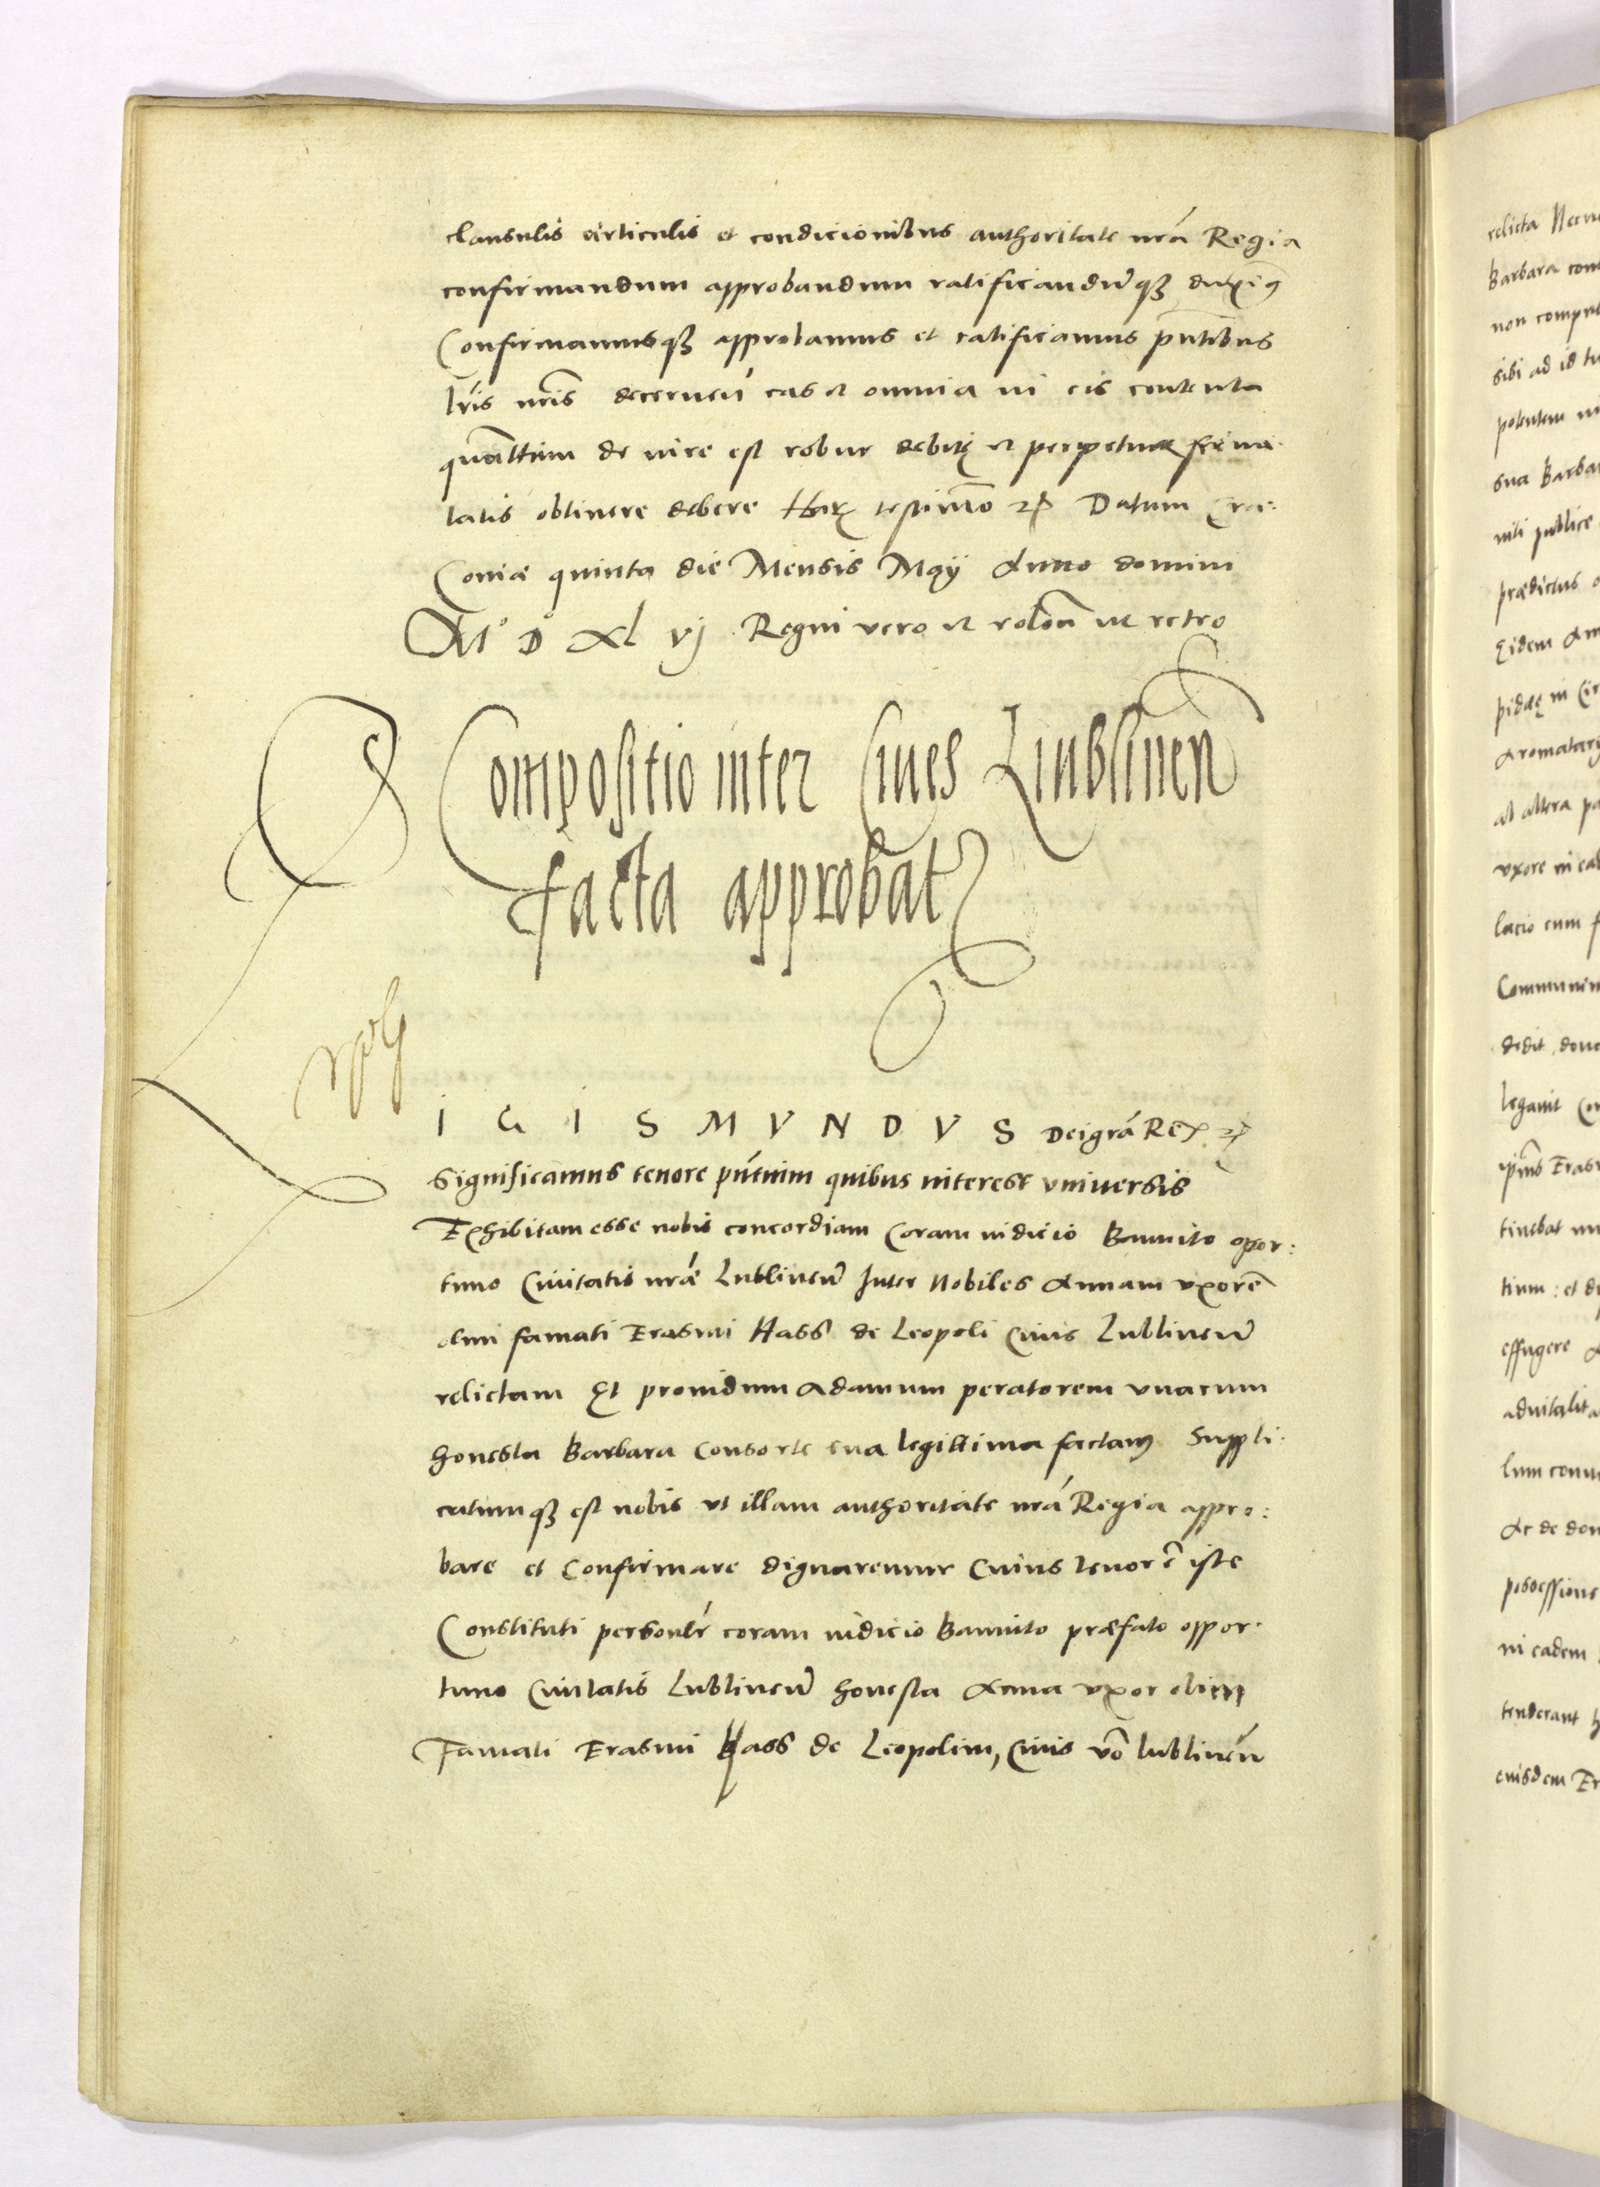 clausulis articulis et condicionibus authoritate nr̃a Regia
confirmandum approbandum ratificandũqȝ duximꝰ
Confirmamusqȝ approbamus et ratificamus pñtibus
lr̃is nr̃is decerneñ eas et omnia in eis contenta
quanttum de iure est robur debitę et perpetuæ firmi-
tatis obtinere debere Harꝝ testimo͞ ꝛc Datum Cra-
Coviæ quinta die Mensis Maÿ Anno domini
Mº Dº Xl vj Regni vero et rõlon̄ ut retro
Compositio inter Cives Liublinen
facta approbatꝛ
S I G I S M V N D V S Dei grã Rex ꝛc
Significamus tenore pñtium quibus interest universis
Exhibitam esse nobis concordiam Coram iudicio Bannito opor:
tuno Civitatis nr̃æ Lublineñ Inter Nobiles Annam uxorẽ
olim famati Erasmi Hass de Leopoli Civis Lublineñ
relictam Et providum Adamum peratorem unacum
honesta Barbara Consorte sua legittima factam Suppli-
catumqȝ est nobis ut illam authoritate nr̃a Regia appro:
bare et Confirmare dignaremur Cuius tenor ẽ iste
Constituti personlr̃ coram iudicio Bannito præfato oppor-
tuno Civitatis Lublineñ honesta Anna uxor olim
Famati Erasmi Hass de Leopolim, Civis vo͞ lublineñ
relicta
Barbara
non
sibi ad id
potentem
sua
publice
prædictus
Eidem
in
al altera
uxore in
lacio cum
dedit
legavit
Eras
tinebat
tium: et
effugere
lum
Ac de
possessione
in eadem
tenderant
eiusdem Er